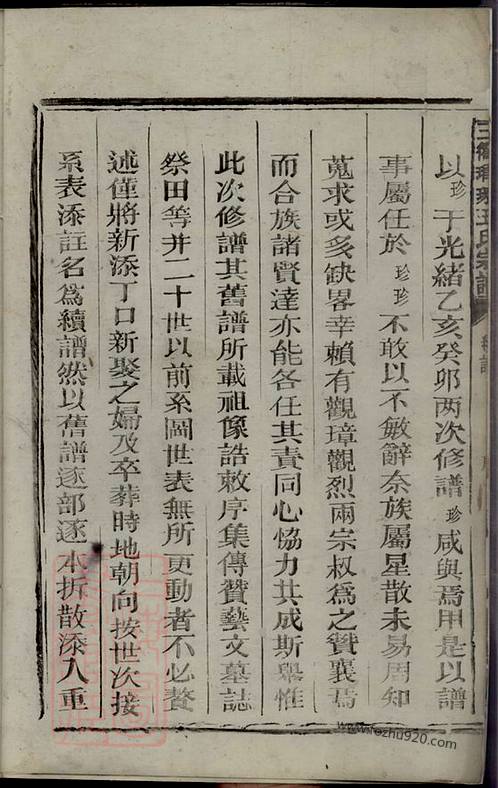 以珍于光緒乙亥癸卯两次修譜珍咸與焉用是以譜
事屬任於珍珍不敢以不敏辭奈族屬星散未易周知
蒐求或多缺畧幸賴有觀璋觀烈兩宗叔為之贊襄焉
而合族諸賢達亦能各任其責同心恊力共成斯舉惟
此次修譜其舊譜所載祖像誥敕序集傳贊藝文墓誌
祭田等井二十世以前系圖世表無所更動者不必贅
述僅將新添丁口新娶之婦及卒葬時地朝向按世次接
系表添註名為續譜然以舊譜逐部逐本折散添入重
三
王氏宗譜
www.fozhu920.com